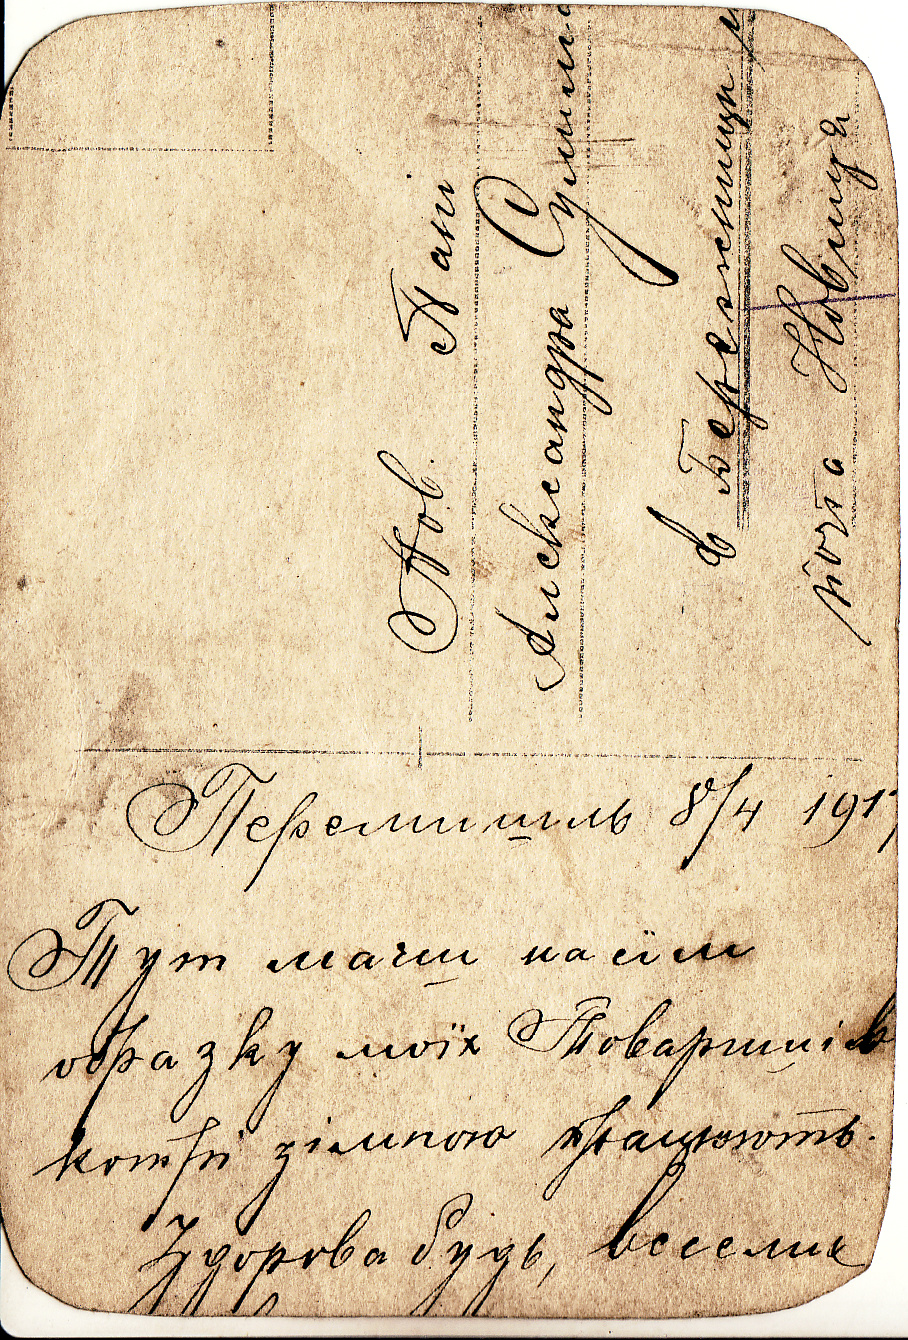 Пов. Пані
Александра
в Бережници
почта Новиця
Перемишль 8/4 191
Тут маеш на сїм
образку моїх Товаришів
котрі зімною працюють.
Здорова будь, веселих